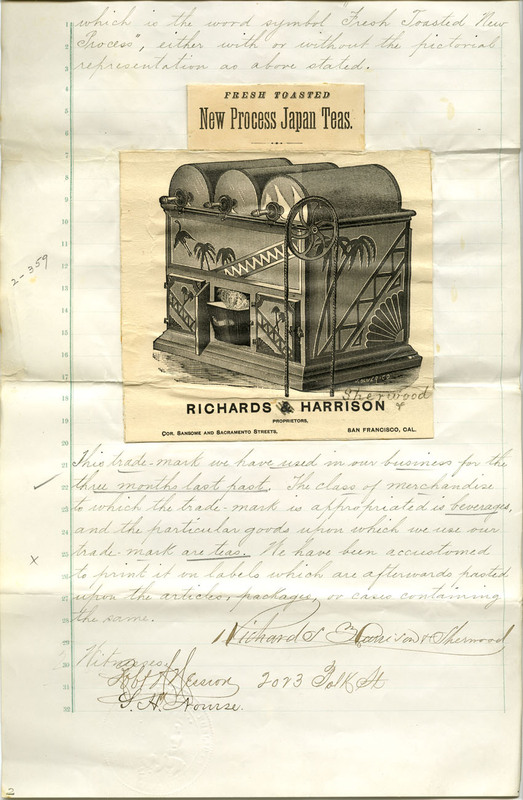 which is the word symbol "Fresh Toasted New
Process", either with or without the pictorial
representation as above stated.
FRESH TOASTED
New Process Japan Teas.
2-359
Sherwood
RICHARDS & HARRISON &
PROPRIETORS,
COR. SANSOME AND SACRAMENTO STREETS, SAN FRANCISCO, CAL.
This trade-mark we have used in our business for the
three months last past. The class of merchandise
to which the trade-mark is appropriated is beverages,
and the particular goods upon which we use our
trade-mark are teas. We have been accustomed
x
to print it on labels which are afterwards pasted
upon the articles, packages, or cases containing
the same.
Richards & Harrison & Sherwood
Witnesses
2023 Polk St
S. H. Nourse.
2
3
4
5
6
7
8
9
10
11
12
13
14
15
16
17
18
19
20
21
22
23
24
25
26
27
28
29
30
31
32
2